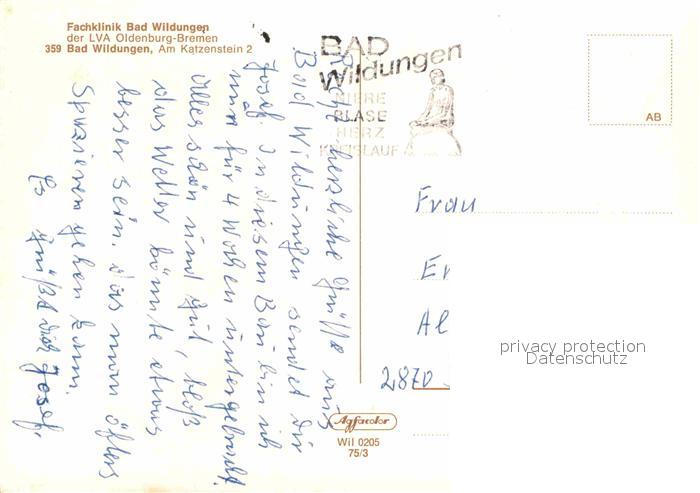 Fachklinik Bad Wildungen
der LVA Oldenburg-Bremen
359 Bad Wildungen, Am Katzenstein 2
BAD
Wildungen
NIERE
BLASE
HERZ
KREISLAUF
AB
Recht herzliche Grüße aus
Bad Wildungen sendet Dir
Josef. In diesem Bau bin ich
nun für 4 Wochen untergebracht.
Alles schön und gut, bloß
das Wetter könnte etwas
besser sein. das man öfters
Spazieren gehen kann.
Es grüßt dich Josef.
Frau
Er
Al
2870
privacy protection
Datenschutz
Agfacolor
Wil 0205
75/3